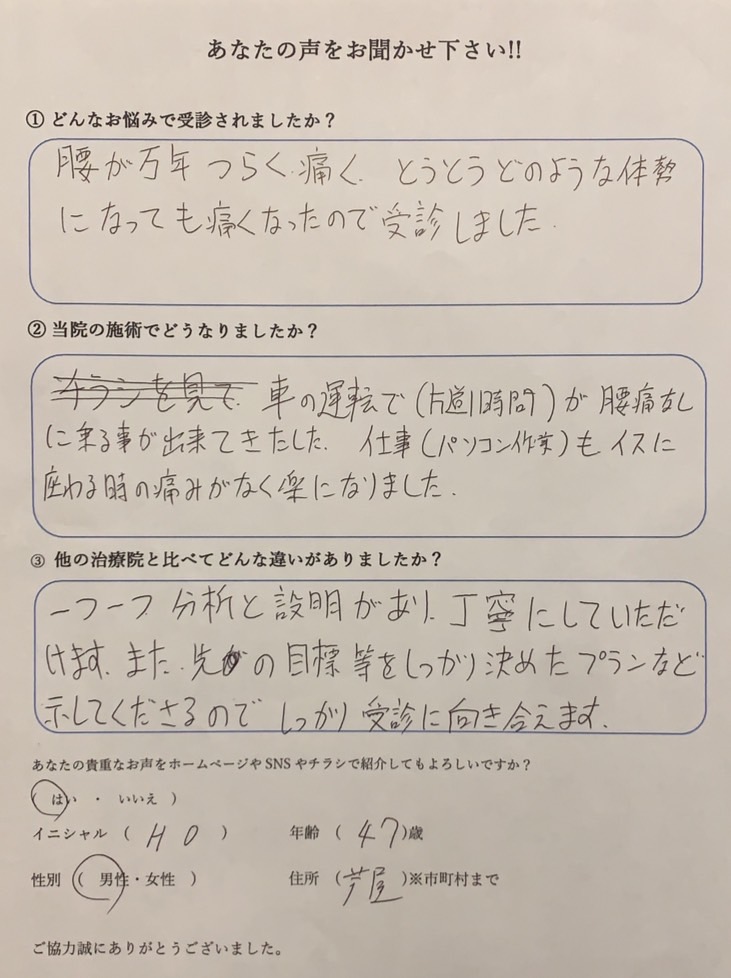 あなたの声をお聞かせ下さい!!
① どんなお悩みで受診されましたか？
腰が万年 つらく、痛く、とうとうどのような体勢
になっても痛くなったので受診しました．
② 当院の施術でどうなりましたか？
チラシを見て 車の運転で(片道1時間)が 腰痛なし
に乗る事が出来てきたした．仕事(パソコン作業)もイスに
座わる時の痛みがなく楽になりました．
③ 他の治療院と比べてどんな違いがありましたか？
一つ一つ 分析と説明があり、丁寧にしていただ
けます．また、先の目標等をしっかり決めたプランなど
示してくださるので しっかり受診に向き合えます．
あなたの貴重なお声をホームページや SNS やチラシで紹介してもよろしいですか？
( はい ・ いいえ )
イニシャル ( H O ) 年齢 ( 47 )歳
性別 ( 男性・女性 ) 住所 ( 芦屋 )※市町村まで
ご協力誠にありがとうございました。